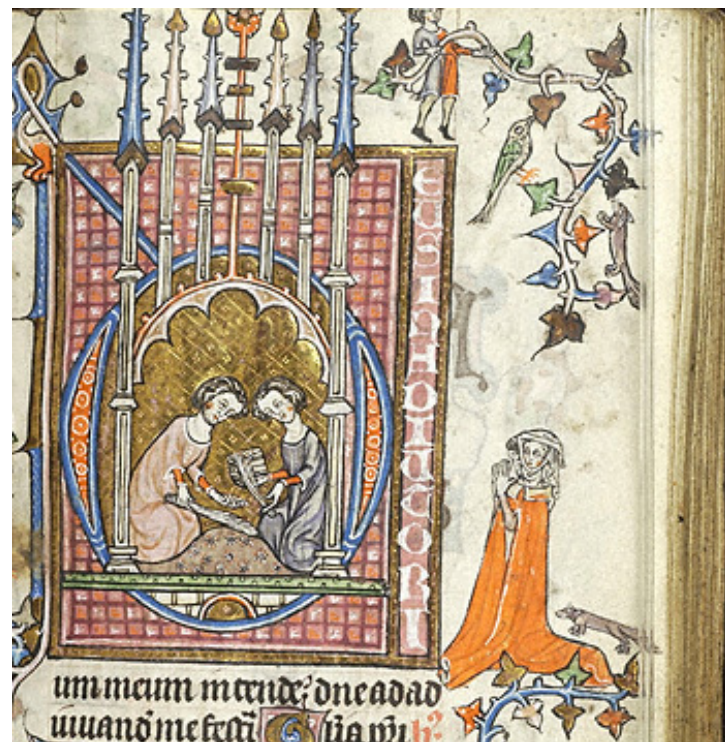 EUSINADIUTORI
um meum intende; dne ad ad
iuuandō me festi Glia pri